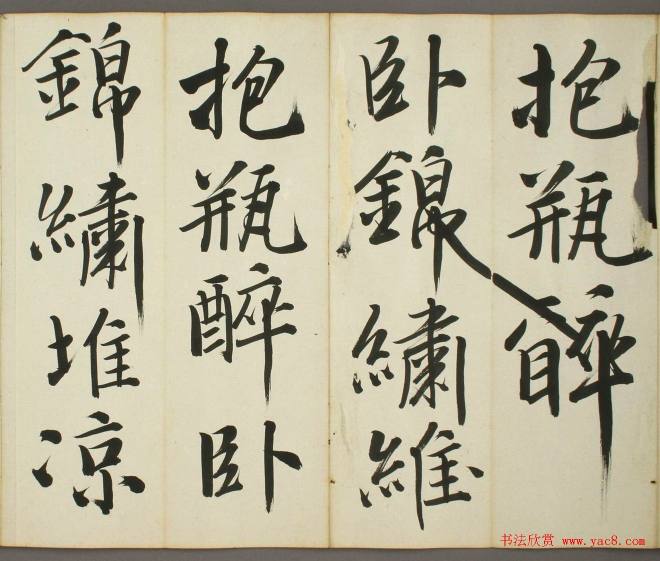 抱瓶睟
卧錦繡維
抱瓶醉卧
錦繡堆凉
书法欣赏 www.yac8.com